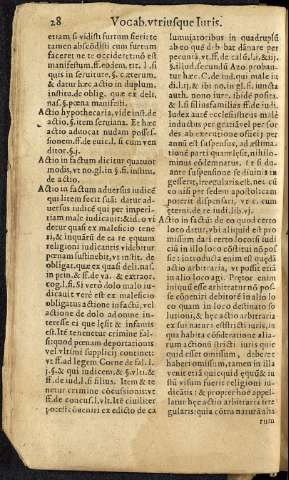 28
Vocab. vtriusque Iuris.
etiam si vidisti furtum fieri: te
tamen abscōdisti cum furtum
faceret ne te occideret: nō est
manifestum. ff. eodem. tit. l. si
quis in seruitute. §. cæterum.
& datur hæc actio in duplum.
instit. de oblig. quæ ex deli.
nas. §. pœna manifesti.
Actio hypothecaria, vide inst. de
actio. §. item seruiana. Et hæc
actio aduocat nudam posses-
sionem. ff. de euict. l. si cum ven
ditor. §. 1.
Actio in factum dicitur quatuor
modis, vt no. gl. in §. fi. institu.
de actio.
Actio in factum aduersus iudicē
qui litem fecit suā: datur ad-
uersus iudicē qui per imperi-
tiam male iudicauit: & id. o vi
detur quasi ex maleficio tene
ri, & inquātū de ea re equum
religioni iudicantis videbitur
pœnam sustinebit, vt instit. de
obligat. quæ ex quasi deli. nas.
in prin. & ff. de va. & extraor.
cog. l. fi. Si verò dolo malo iu-
dicauit verè est ex maleficio
obligatus actione infacti: vel
actione de dolo ad omne in-
teresse ei que læsit & infamis
est. Itē tenetur crimine fal-
si: quod pœnam deportationis
vel vltimi supplicij continet:
vt ff. ad legem Corne. de fal. l.
1. §. & qui iudicem. & §. vlti. &
ff. de iud. l. si filius. Item & te
netur crimine cōcussionis: vt
ff. de concus. l. vlt. Itē ciuiliter
potest cōueniri ex edicto de ca
lumniatoribus in quadruplū
ab eo quò dib. bat dānare per
pecuniā. vt. ff. de calū. l. 1. & iij.
§. illud. secundū Azo. proban-
tur hæc. C. de iud. qui male iu
di. l. ij. & ibi no. in gl. fi. iuncta
auth. nouo iure. ibidē posita.
& l. si filius familias ff. de iudi.
Iudex autē ecclesiasticus malè
iudicās per gratiā vel per sor
des ab executione officij per
annū est suspensus, ad æstima-
tionē parti quam læsit, nihilo-
minus cōdemnatus. et si du-
rante suspensione se diuinis in
gesserit, irregularis est. nec cū
eo vi per sedem apostolicam
poterit dispensari, vt c. cum
eterni. de re iudi. lib. vj.
Actio in factū: de eo quod certo
loco datur, vbi aliquid est pro
missum dari certo loco: si iudi
ciū in illo loco cōstitui nō pos
sit: introducta enim est quedā
actio arbitraria, vt possit etiā
in alio loco agi. Propter enim
iniquū esse arbitratur nō pos-
se cōueniri debitorē in alio lo
co quam in loco destinato so-
lutioni, & hæc actio arbitraria
ex sua natura est stricti iuris, in
qua habita cōsideratione alia-
rum actionū stricti iuris quic
quid esset omissum, deberet
haberi omissum, tamen in illa
venit etiā quicquid equū & iu
stū visum fuerit religioni iu-
dicātis: & propter hoc appel-
latur hæc actio arbitraria sin-
gularis: quia cōtra naturā alia
rum